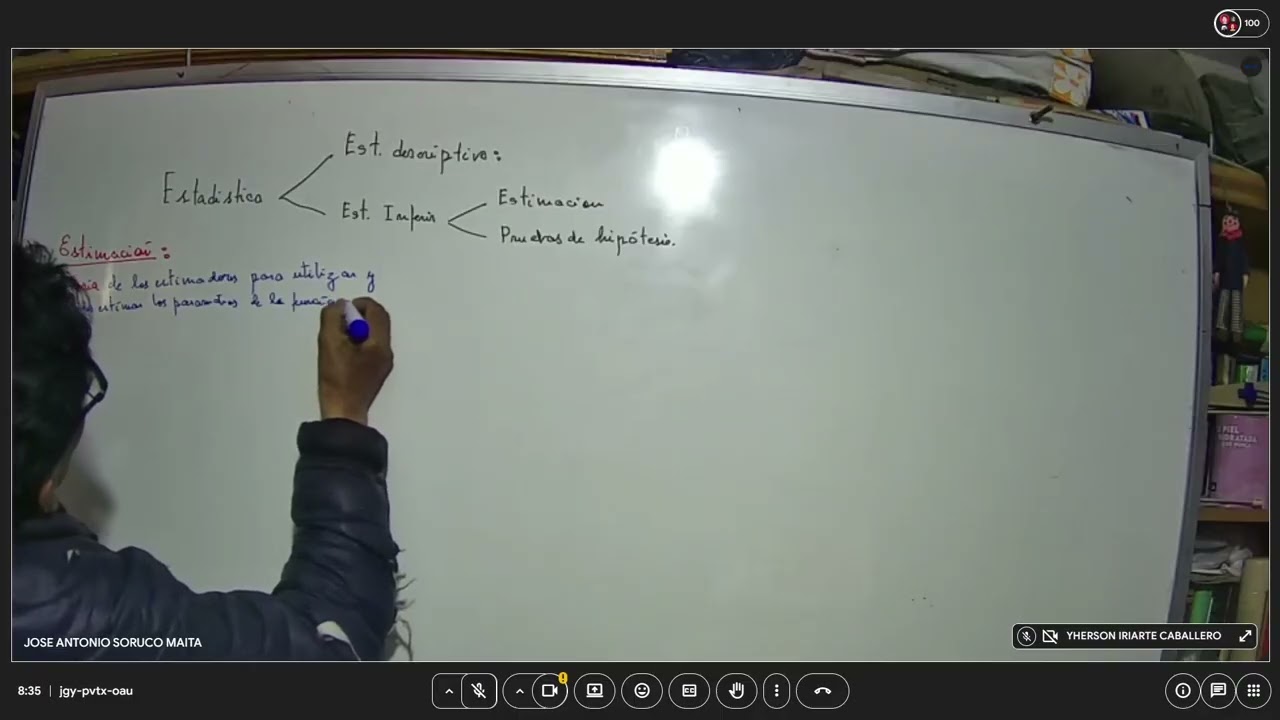 100
Est. descriptiva:
Estadistica
Est. Infer
Estimacion
Pruebas de hipótesis.
Estimación:
de los estimadores para utilizar y
estimar los parametros de la
PIEL
HIDRATADA
JOSE ANTONIO SORUCO MAITA
YHERSON IRIARTE CABALLERO
8:35 | jgy-pvtx-oau